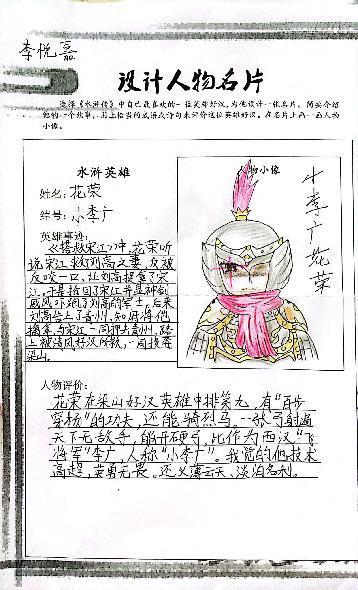 李悦嘉
设计人物名片
选择《水浒传》中自己最喜欢的一位英雄好汉，为他设计一张名片，简要介绍
他的一个故事，用上恰当的成语或诗句来评价这位英雄好汉。在名片上画一画人物
小像。
水浒英雄
姓名：花荣
绰号：小李广
英雄事迹：
《搭救宋江》中，花荣听
说宋江救了刘高之妻，反被
反咬一口，让刘高捉拿了宋
江，于是救回了宋江并且神剑
威风吓跑了刘高的军士，后来
刘高告上了青州，知府将他
擒拿，与宋江一同押去青州，路
上被清风好汉所救，一同投奔
梁山。
人物小像
小李广花荣
人物评价：
花荣在梁山好汉英雄中排第九，有“百步
穿杨”的功夫，还能骑烈马。一张弓射遍
天下无敌手，能开硬弓，比作为西汉“飞
将军”李广，人称“小李广”。我觉的他技术
高超，英勇无畏。还义薄云天、淡泊名利。